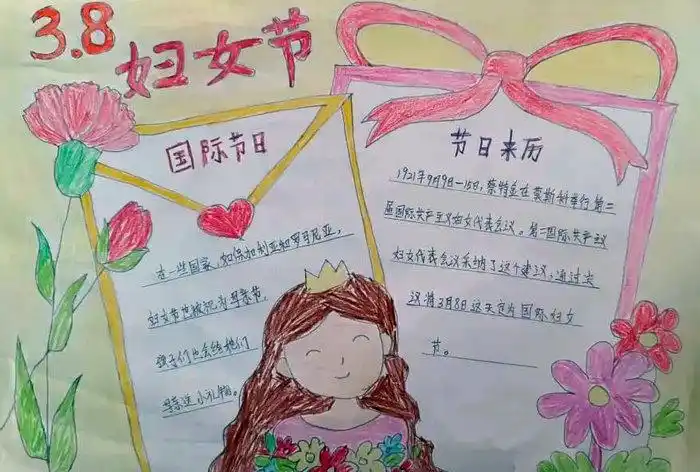 3.8
妇女节
国际节日
在一些国家,如保加利亚和罗马尼亚,
妇女节也被视为母亲节,
孩子们也会给她们
母亲送小礼物。
节日来历
1921年9月9日-15日,蔡特金在莫斯科举行第二
届国际共产主义妇女代表会议。第二国际共产主义
妇女代表会议采纳了这个建议,通过决
议将3月8日这天定为国际妇女
节。